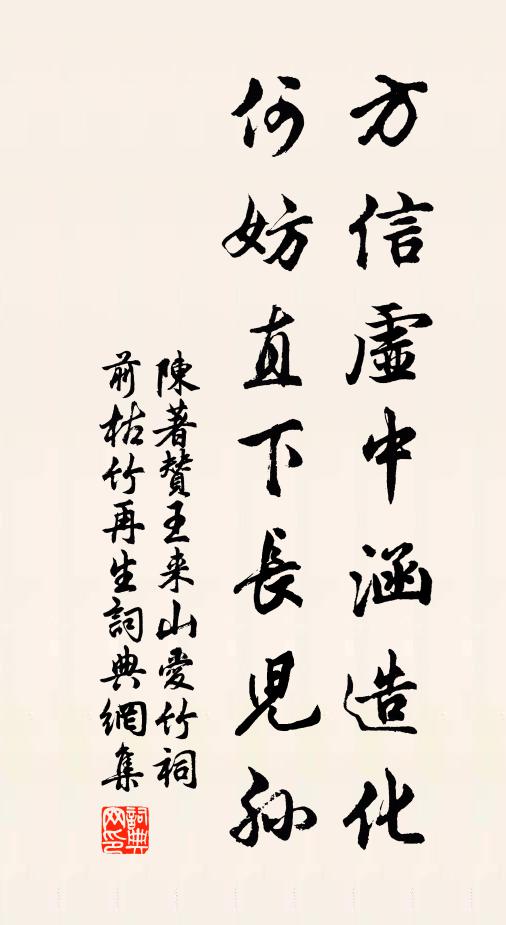 方信虛中涵造化
何妨直下長兒孫
陳著贊王来山愛竹祠
前枯竹再生詞典網集
詞典
网印